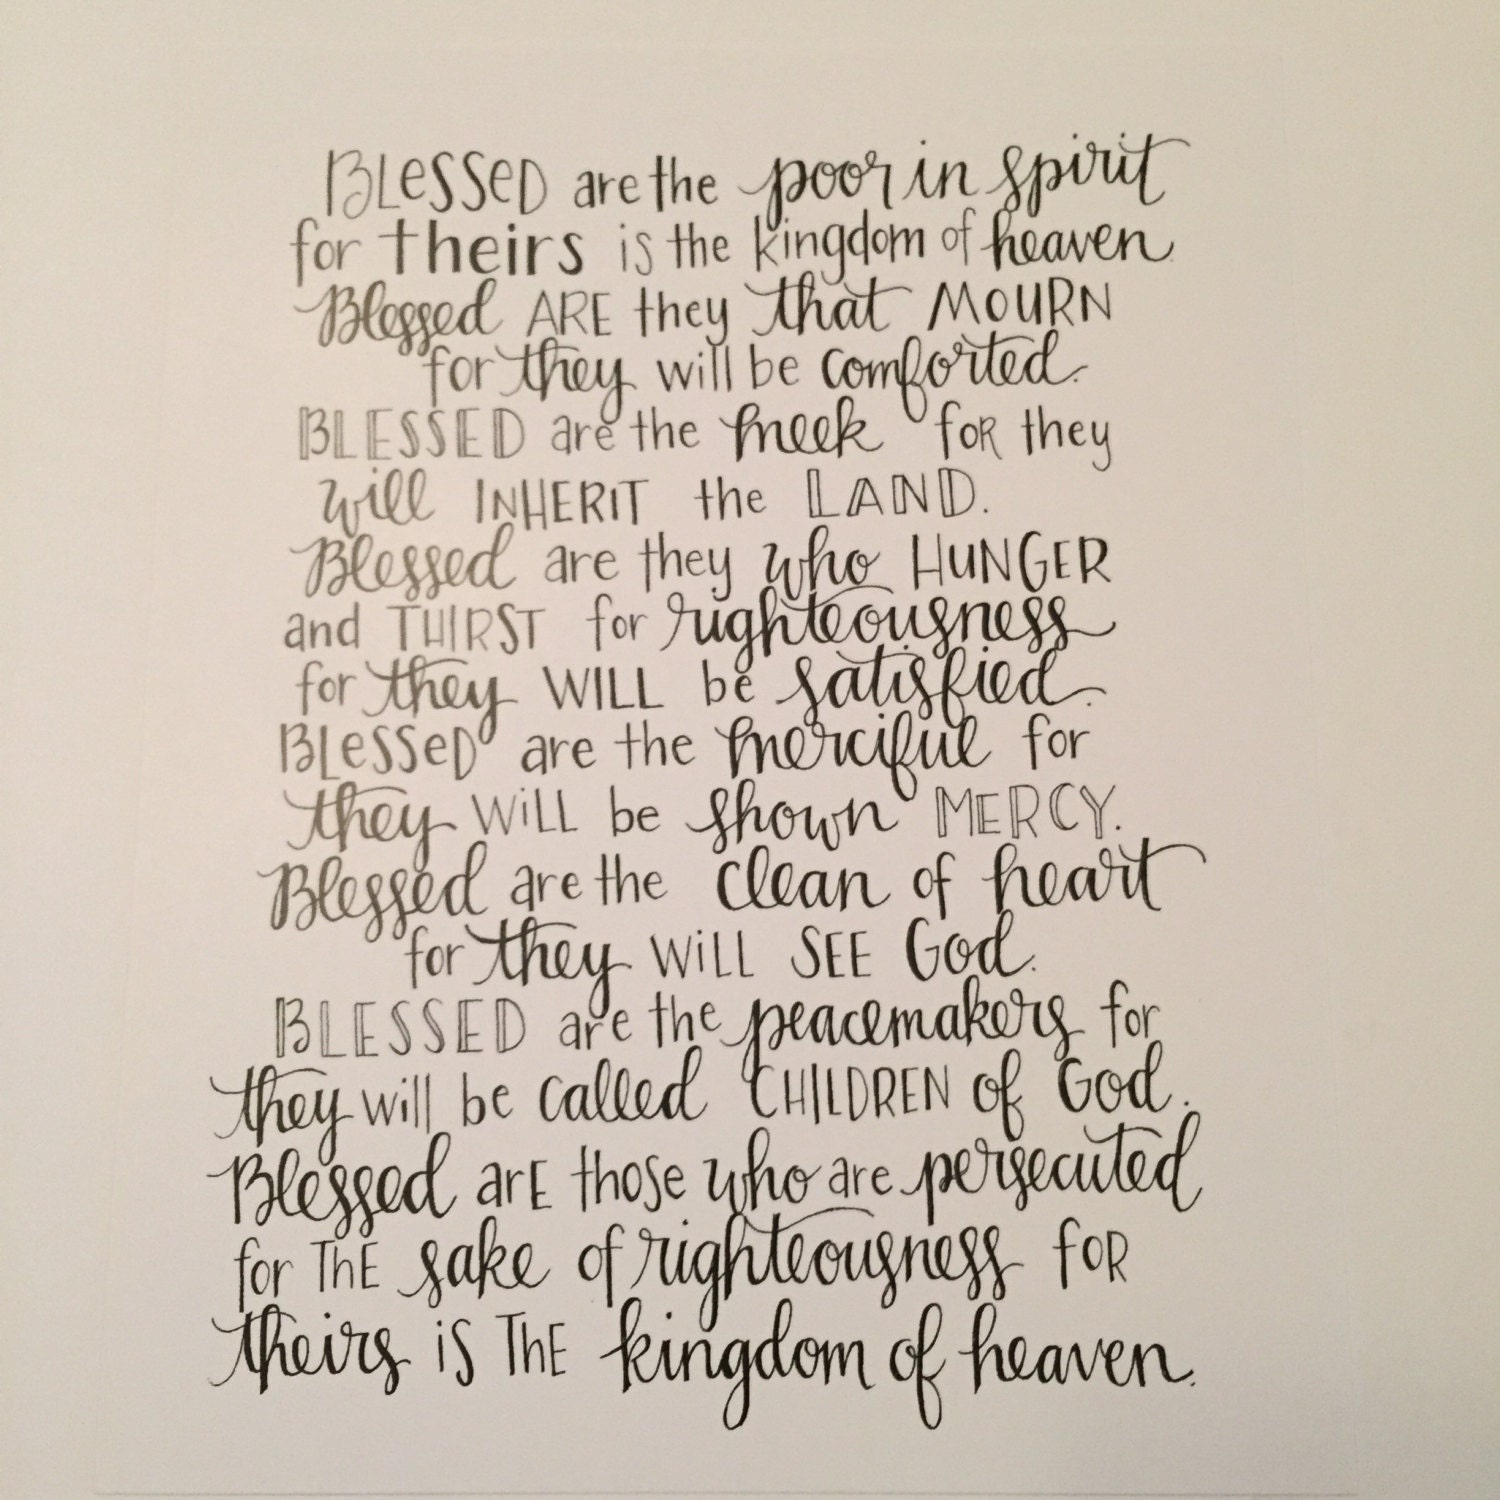 BLeSSeD are the poor in spirit
for theirs is the kingdom of heaven
Blessed ARE they that MOURN
for they will be comforted.
BLESSED are the meek foR they
will INHERIT the LAND.
Blessed are they who HUNGER
and THIRST for righteousness
for they WILL be satisfied.
BLeSSeD are the merciful for
they WiLL be shown MERCY.
Blessed are the clean of heart
for they WiLL SEE God.
BLESSED are the peacemakers for
they will be called CHILDREN of God.
Blessed arE those who are persecuted
for ThE sake of righteousness foR
theirs iS ThE kingdom of heaven.